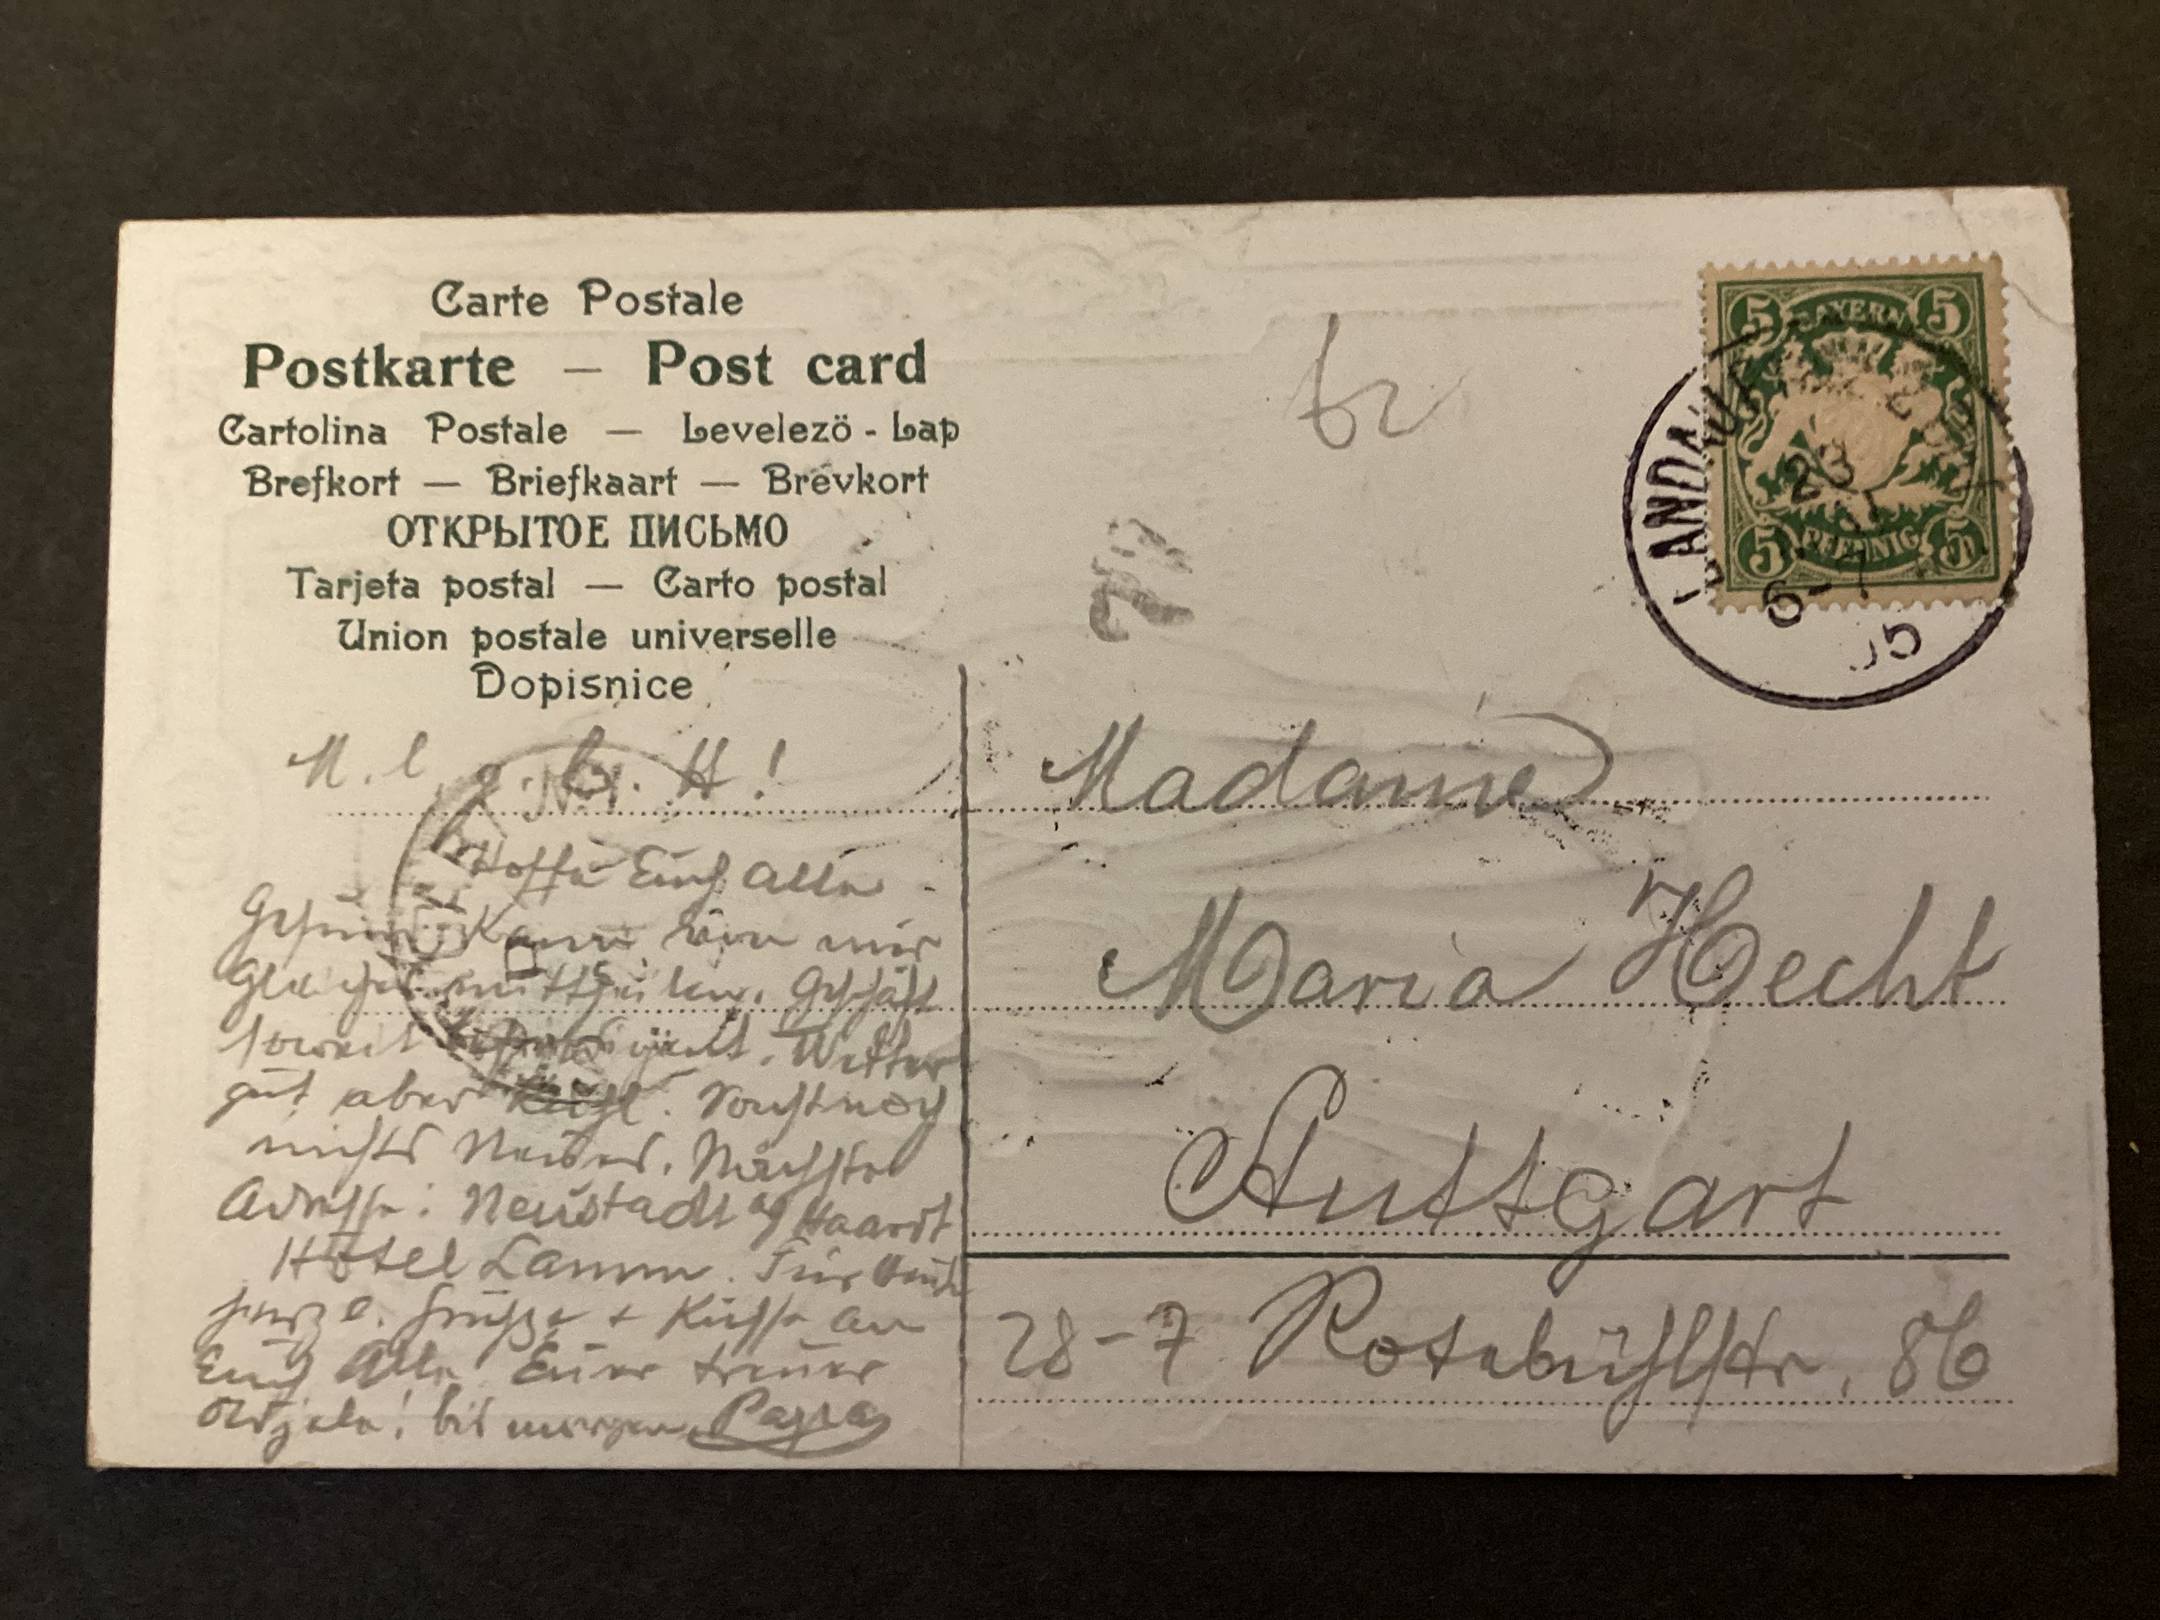 Carte Postale
Postkarte — Post card
Cartolina Postale — Levelező - Lap
Brefkort — Briefkaart — Brevkort
ОТКРЫТОЕ ПИСЬМО
Tarjeta postal — Carto postal
Union postale universelle
Dopisnice
BAYERN
5 5
5 5
PFENNIG
LANDAU
23
6-7
05
M. l. H!
Hoffe Euch Alle
Gesund. Kann von mir
Gleiches mittheilen. Geschäft
soweit Wetter
gut aber kühl. Sonst noch
nichts Neues. Nächste
Adresse: Neustadt a/Haardt
Hôtel Lamm. Für Heute
herzl. Grüsse + Küsse an
Euch Alle Euer treuer
bis morgen Papa
Madame
Maria Hecht
Stuttgart
28-7 Rotebühlstr. 86